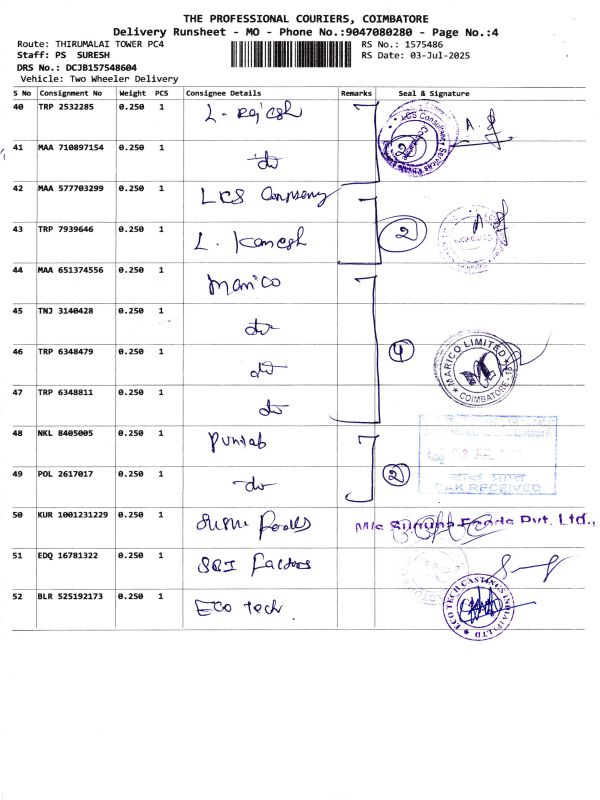 THE PROFESSIONAL COURIERS, COIMBATORE
Delivery Runsheet - MO - Phone No.:9047080280 - Page No.:4
Route: THIRUMALAI TOWER PC4 RS No.: 1575486
Staff: PS SURESH RS Date: 03-Jul-2025
DRS No.: DCJB157548604
Vehicle: Two Wheeler Delivery
S No Consignment No Weight PCS Consignee Details Remarks Seal & Signature
40 TRP 2532285 0.250 1 L. Rajesh
41 MAA 710897154 0.250 1 do 2
42 MAA 577703299 0.250 1 LKS
43 TRP 7939646 0.250 1 L. Kamesh 2
44 MAA 651374556 0.250 1 Marico
45 TNJ 3140428 0.250 1 do
46 TRP 6348479 0.250 1 do 4 MARICO LIMITED COIMBATORE-18
47 TRP 6348811 0.250 1 do
48 NKL 8405005 0.250 1 Punjab
49 POL 2617017 0.250 1 do 2 RECEIVED
50 KUR 1001231229 0.250 1 Foods M/s Foods Pvt. Ltd.,
51 EDQ 16781322 0.250 1 SBI Factors
52 BLR 525192173 0.250 1 Eco tech ECO TECH CASTINGS INDIA (P) LTD